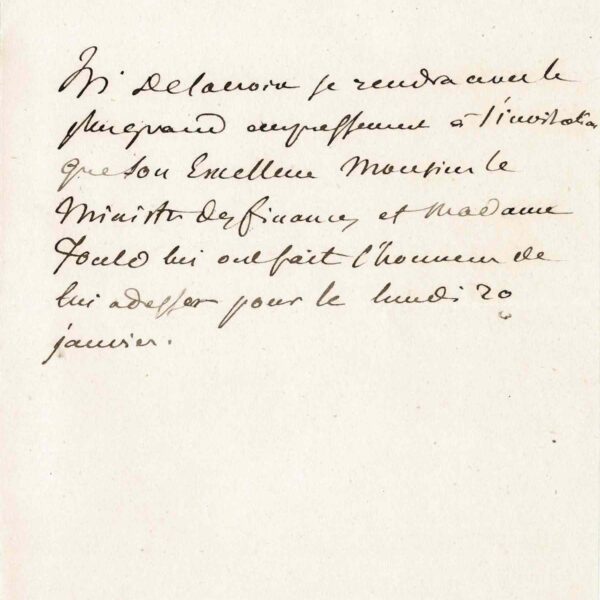 Delacroix se rendra avec le
plus grand empressement à l'invitation
que Son Excellence Monsieur le
Ministre des finances et Madame
Fould lui ont fait l'honneur de
lui adresser pour le lundi 20
janvier.